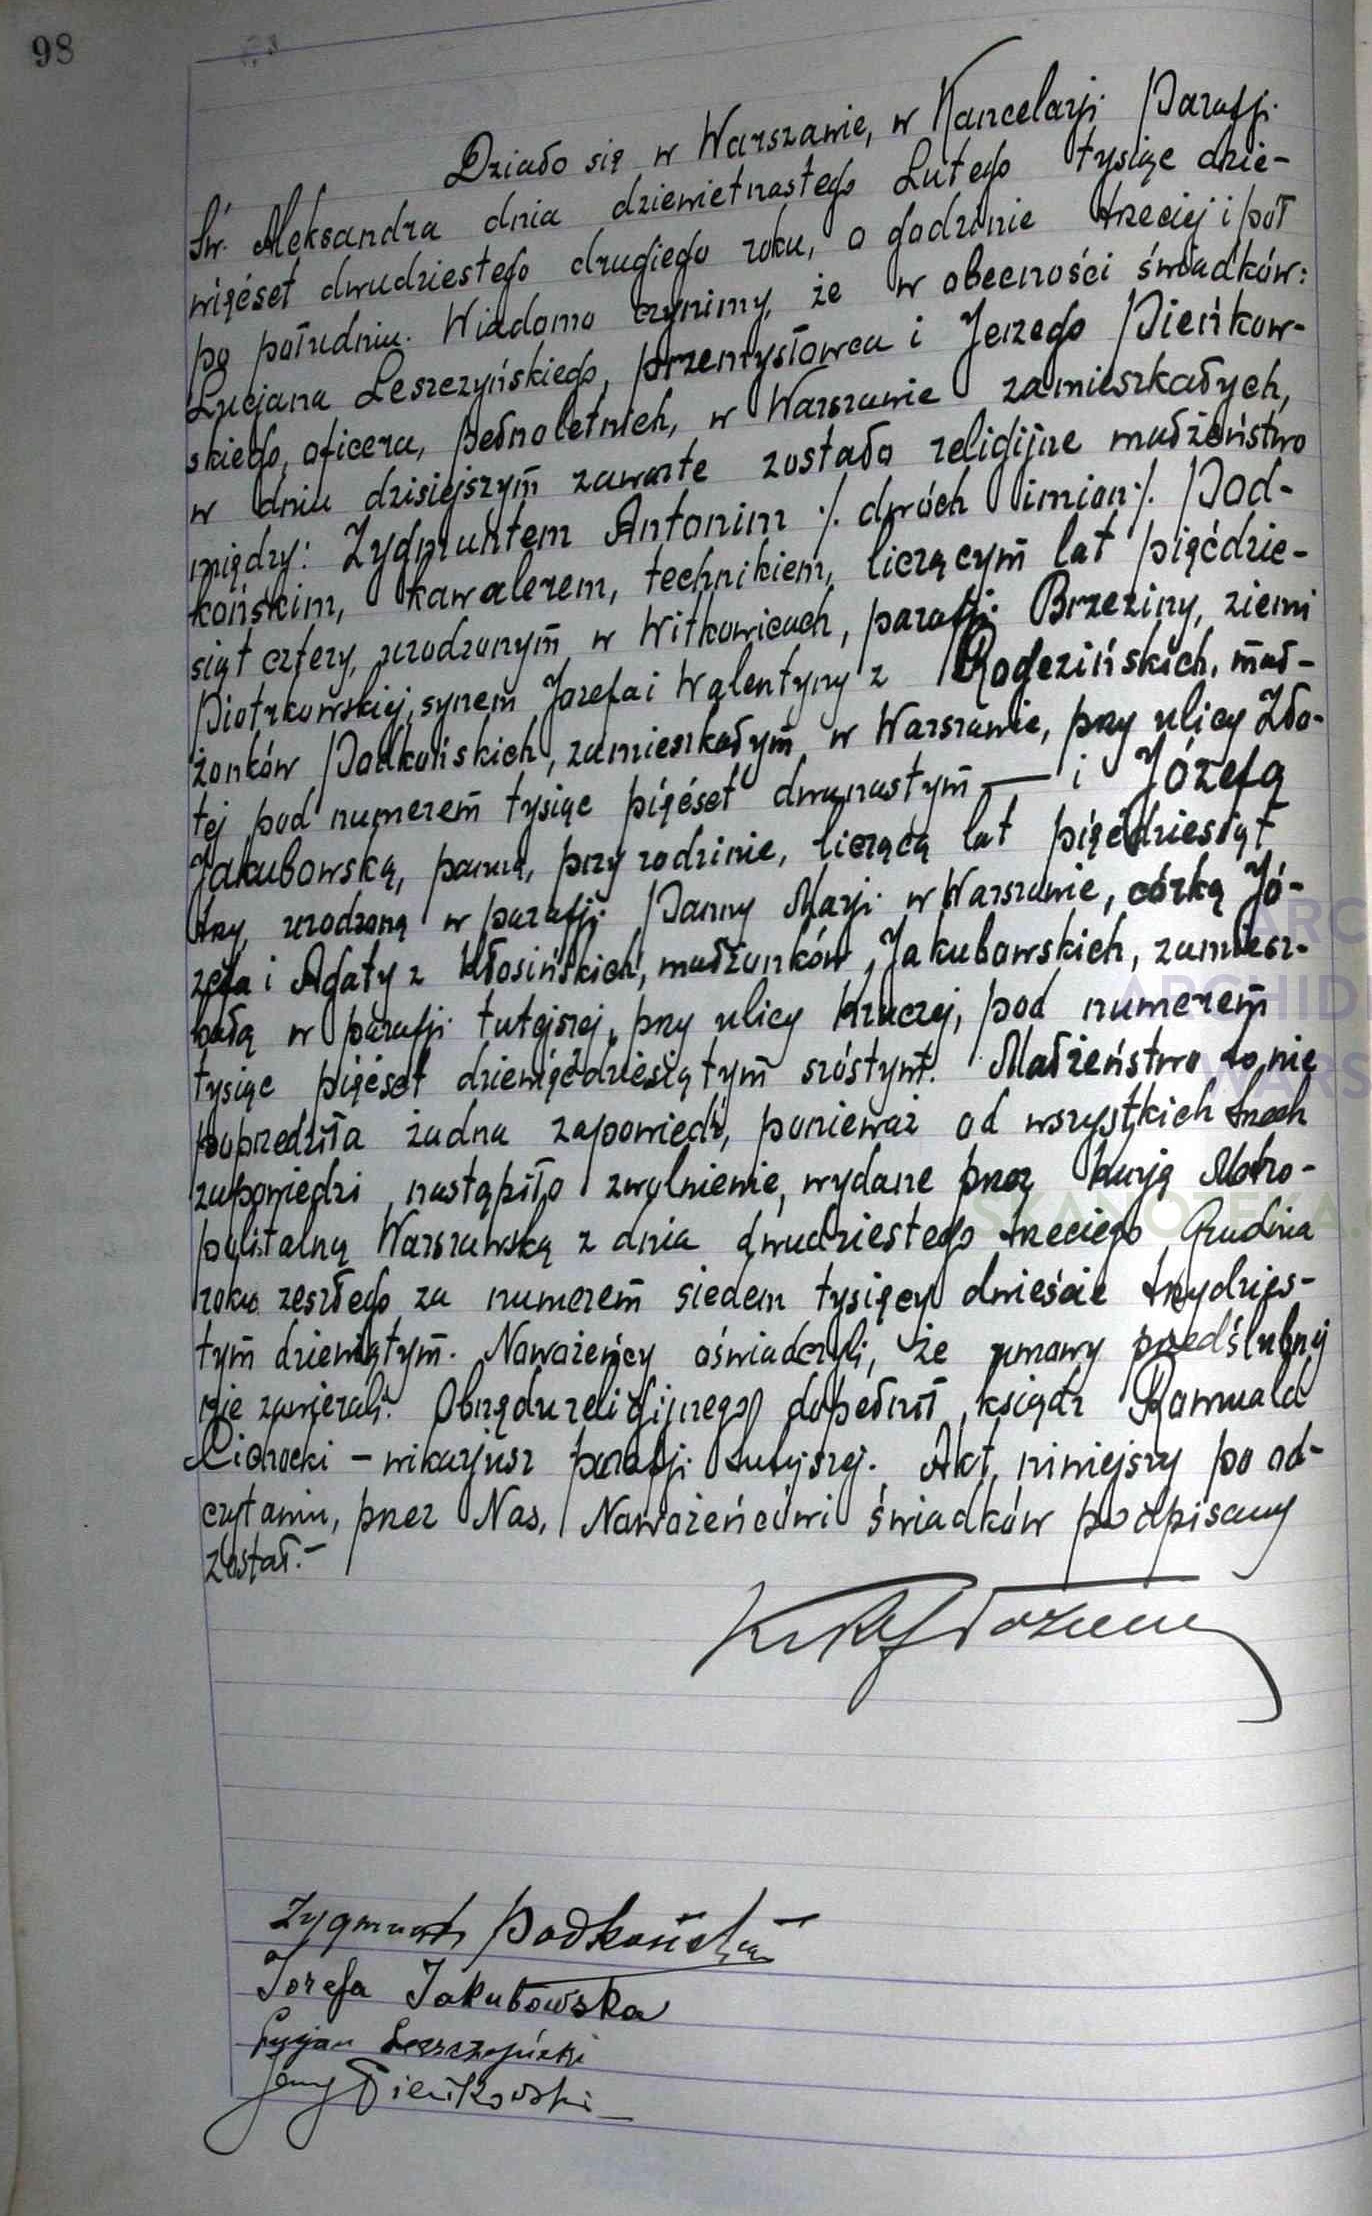 98
Działo się w Warszawie, w Kancelarji Parafji
Św. Aleksandra dnia dziewiętnastego Lutego tysiąc dzie-
więćset dwudziestego drugiego roku, o godzinie trzeciej i pół
po południu. Wiadomo czynimy, że w obecności świadków:
Lucjana Leszczyńskiego, przemysłowca i Jerzego Pieńkow-
skiego, oficera, pełnoletnich, w Warszawie zamieszkałych,
w dniu dzisiejszym zawarte zostało religijne małżeństwo
między: Zygmuntem Antonim /. dwóch imion /. Pod-
końskim, kawalerem, technikiem, liczącym lat pięćdzie-
siąt cztery, urodzonym w Witkowicach, parafji Brzeziny, ziemi
Piotrkowskiej, synem Józefa i Walentyny z Rogozińskich, mał-
żonków Podkońskich, zamieszkałym w Warszawie, przy ulicy Zło-
tej pod numerem tysiąc pięćset dwunastym — i Józefą
Jakubowską, panną, przy rodzinie, liczącą lat pięćdziesiąt
trzy, urodzoną w parafji Panny Marji w Warszawie, córką Jó-
zefa i Agaty z Kłosińskich, małżonków Jakubowskich, zamiesz-
kałą w parafji tutejszej, przy ulicy Kruczej, pod numerem
tysiąc pięćset dziewięćdziesiątym szóstym. Małżeństwo to nie
poprzedziła żadna zapowiedź, ponieważ od wszystkich trzech
zapowiedzi nastąpiło zwolnienie, wydane przez Kurją Metro-
politalną Warszawską z dnia dwudziestego trzeciego Grudnia
roku zeszłego za numerem siedem tysięcy dwieście trzydzies-
tym dziewiątym. Nowożeńcy oświadczyli, że umowy przedślubnej
nie zawierali. Obrzędu religijnego dopełnił ksiądz Romuald
– wikarjusz parafji tutejszej. Akt niniejszy po od-
czytaniu, przez Nas, Nowożeńców i świadków podpisany
został.–
Zygmunt Podkoński
Józefa Jakubowska
Lucjan Leszczyński
Jerzy Pieńkowski
SKANOTEKA.
ARC
ARCHID
WARS